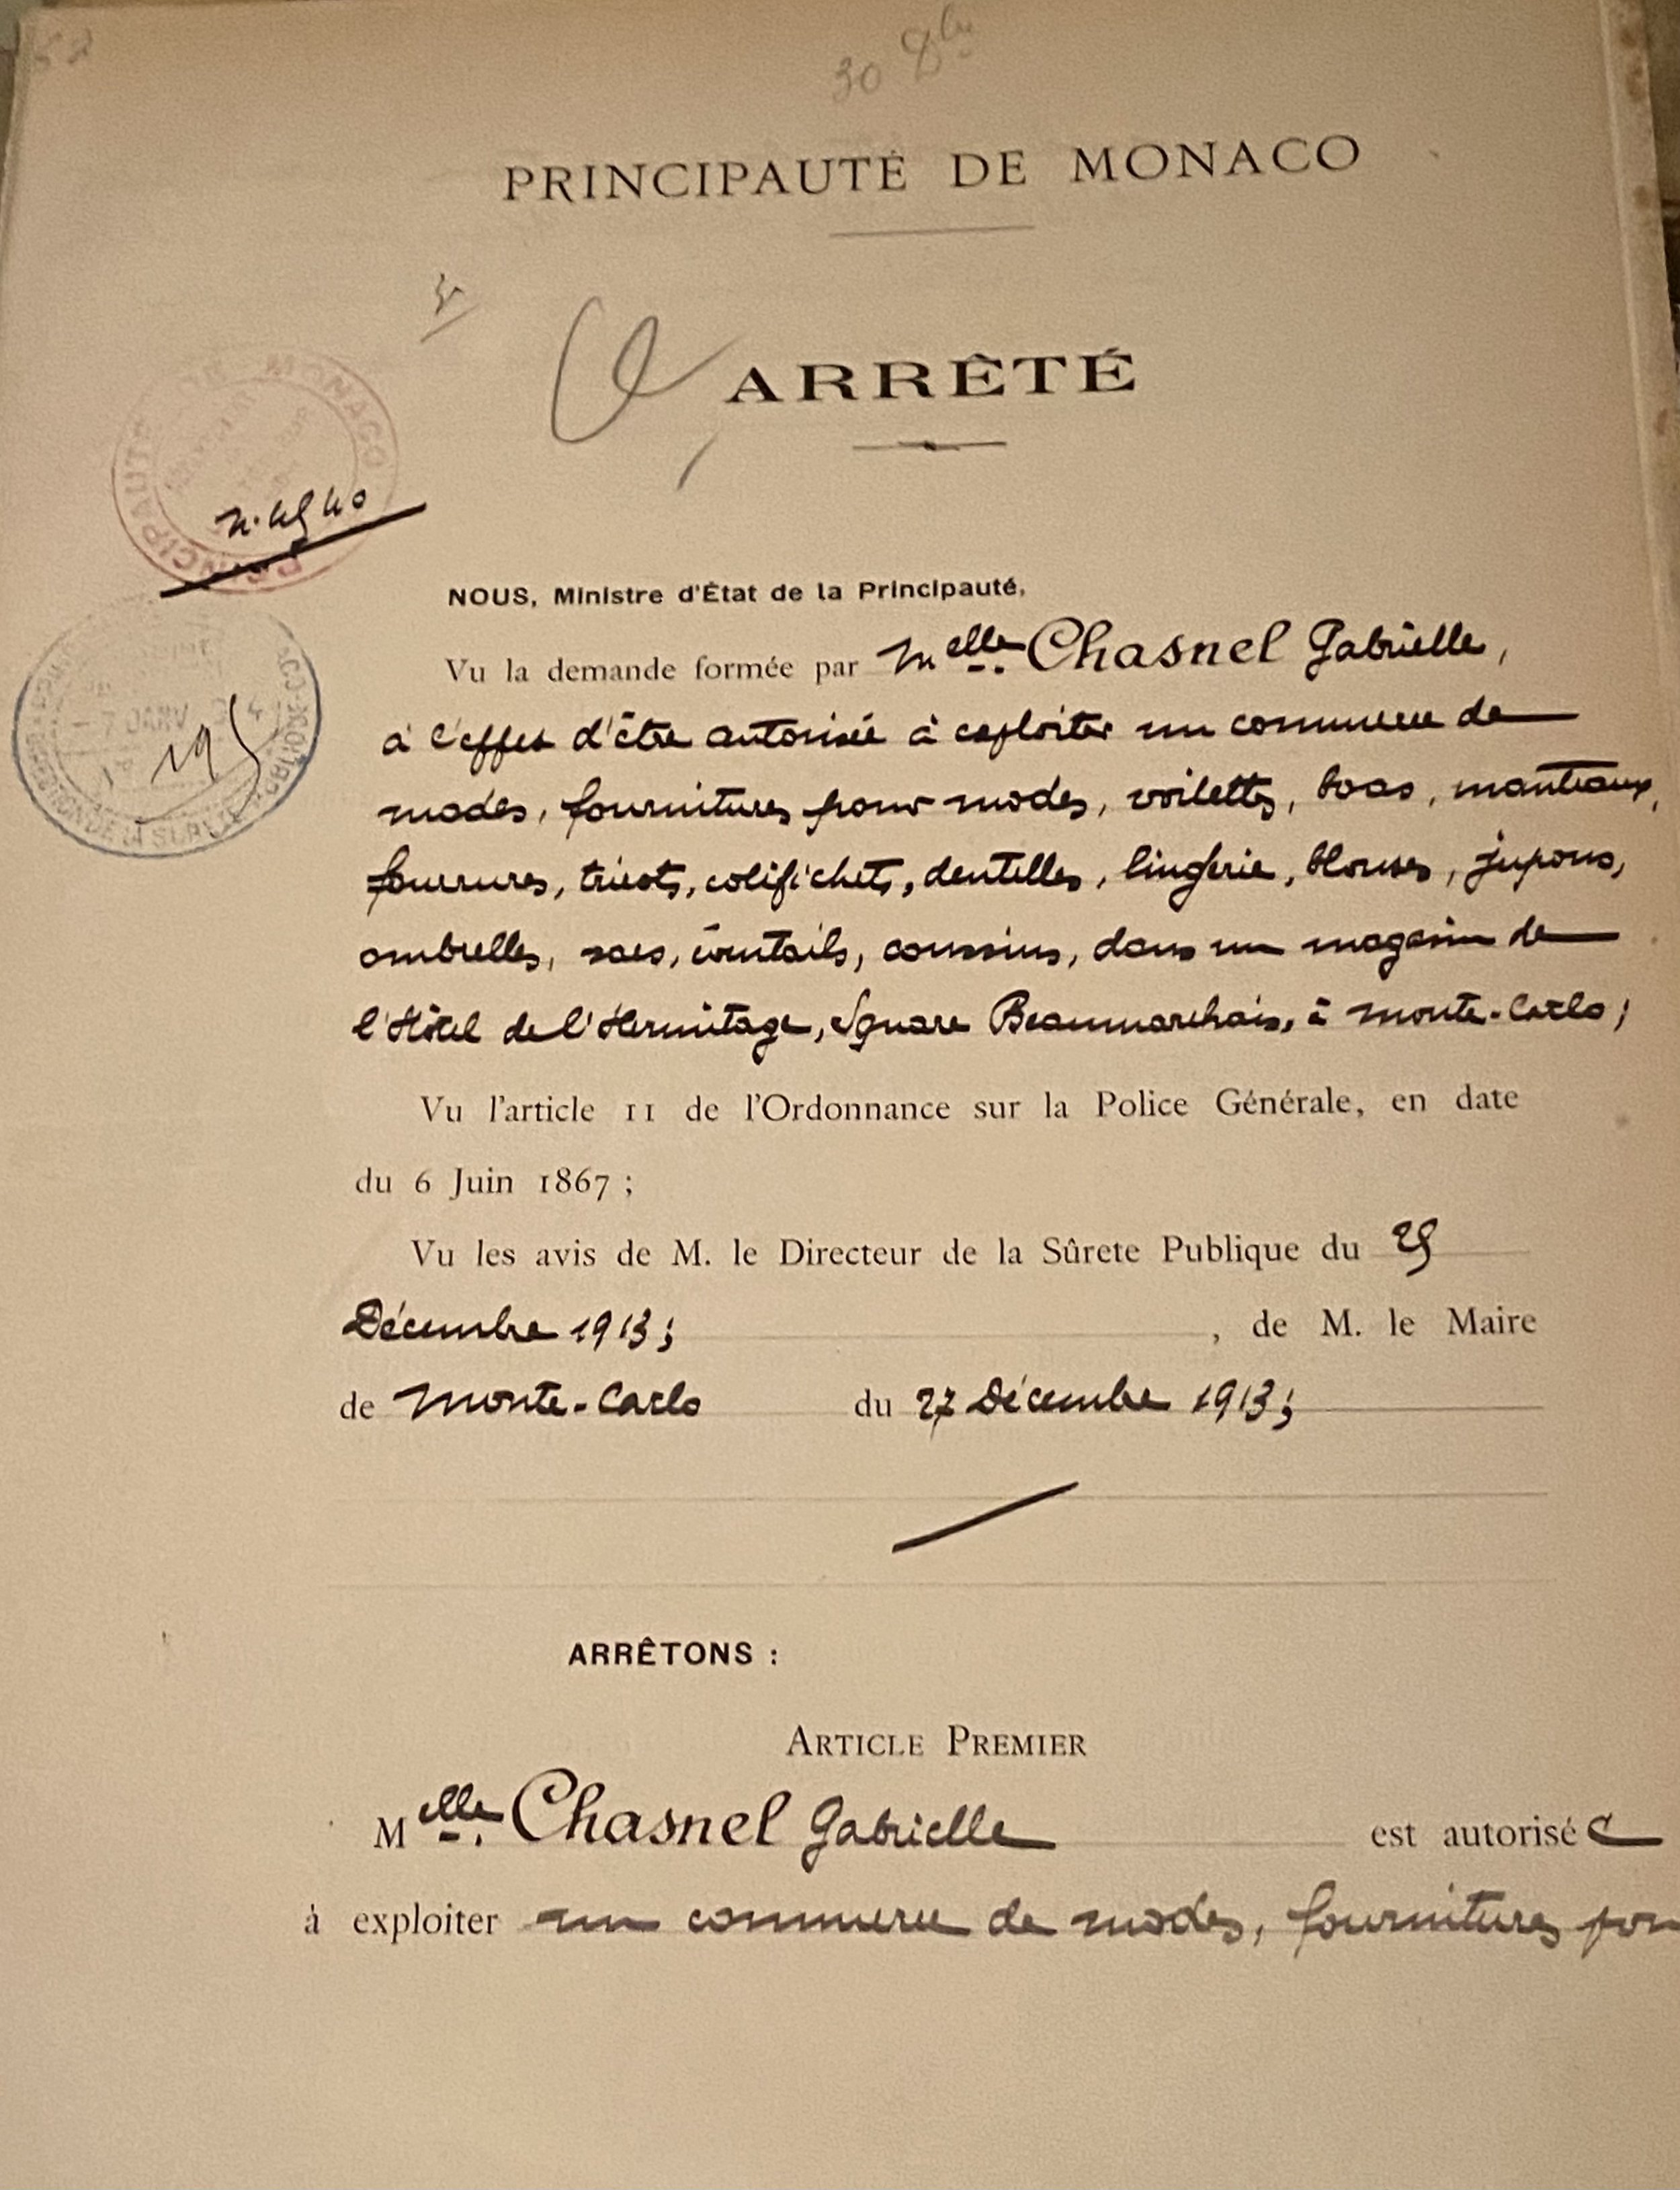 52
30 8bre
PRINCIPAUTÉ DE MONACO
ARRÊTÉ
PRINCIPAUTÉ DE MONACO
NOUS, Ministre d'État de la Principauté,
Vu la demande formée par Melle Chasnel Gabrielle,
à l'effet d'être autorisée à exploiter un commerce de
modes, fournitures pour modes, voilettes, boas, manteaux,
fourrures, tricots, colifichets, dentelles, lingerie, blouses, jupons,
ombrelles, sacs, éventails, coussins, dans un magasin de
l'Hôtel de l'Hermitage, Square Beaumarchais, à Monte-Carlo;
7 JANV
195
DIRECTION DE LA SURETÉ
Vu l'article 11 de l'Ordonnance sur la Police Générale, en date
du 6 Juin 1867 ;
Vu les avis de M. le Directeur de la Sûrete Publique du 29
Décembre 1913; , de M. le Maire
de Monte-Carlo du 27 Décembre 1913;
ARRÊTONS :
ARTICLE PREMIER
Melle Chasnel Gabrielle est autorisée
à exploiter un commerce de modes, fournitures pou